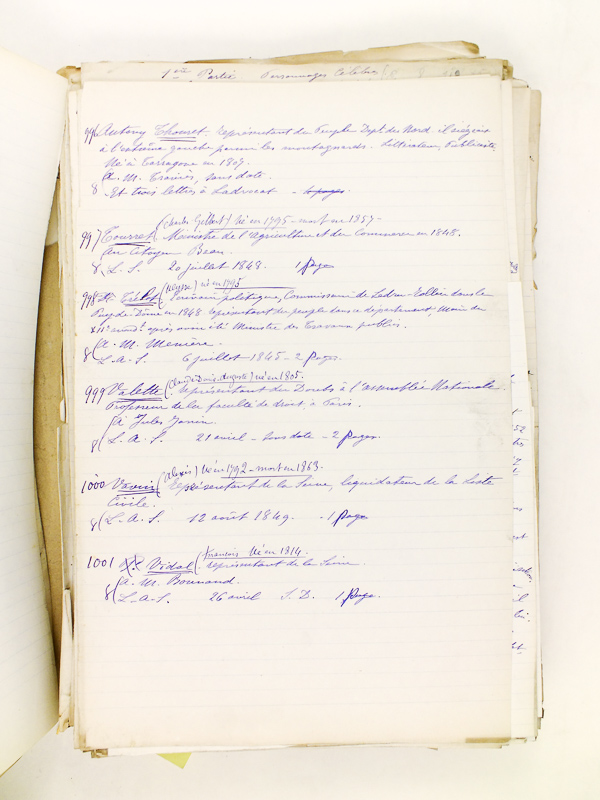 1ère Partie Personnages Célèbres
996 Antony Thouret. représentant du Peuple Dept du Nord il siégea
à l'extrême gauche parmi les montagnards. Littérateur, Publiciste.
Né à Tarragone en 1807.
A. M. sans date.
8 Et trois lettres à Ladrscat - 4 pages
997 Tourret (Charles Gilbert) Né en 1795 - mort en 1857 -
Ministre de l'agriculture et du Commerce en 1848.
au citoyen Beau.
8 L. S. 20 juillet 1848. 1 page
998 Trélat (Ulysse) né en 1795
Écrivain politique, Commissaire de Ledru-Rollin dans le
Puy-de-Dôme en 1848 représentant du peuple dans ce département, Maire du
XIIe arrondt après avoir été Ministre des Travaux publics.
à M. Menière.
8 L. A. S. 6 juillet 1845 - 2 pages.
999 Valette (Claude Denis Auguste) né en 1805.
représentant du Doubs à l'assemblée Nationale
Professeur de la faculté de droit, à Paris.
à Jules Janin
8 L. A. S. 21 avril - sans date - 2 pages.
1000 Vavin (Alexis) Né en 1792 - mort en 1863.
Représentant de la Seine, liquidateur de la Liste
Civile.
8 L. A. S. 12 août 1849. - 1 page
1001 Vidal (François Né en 1814.
représentant de la Seine.
à M. Bonnand.
8 L. A. S. 26 avril S. D. 1 page.